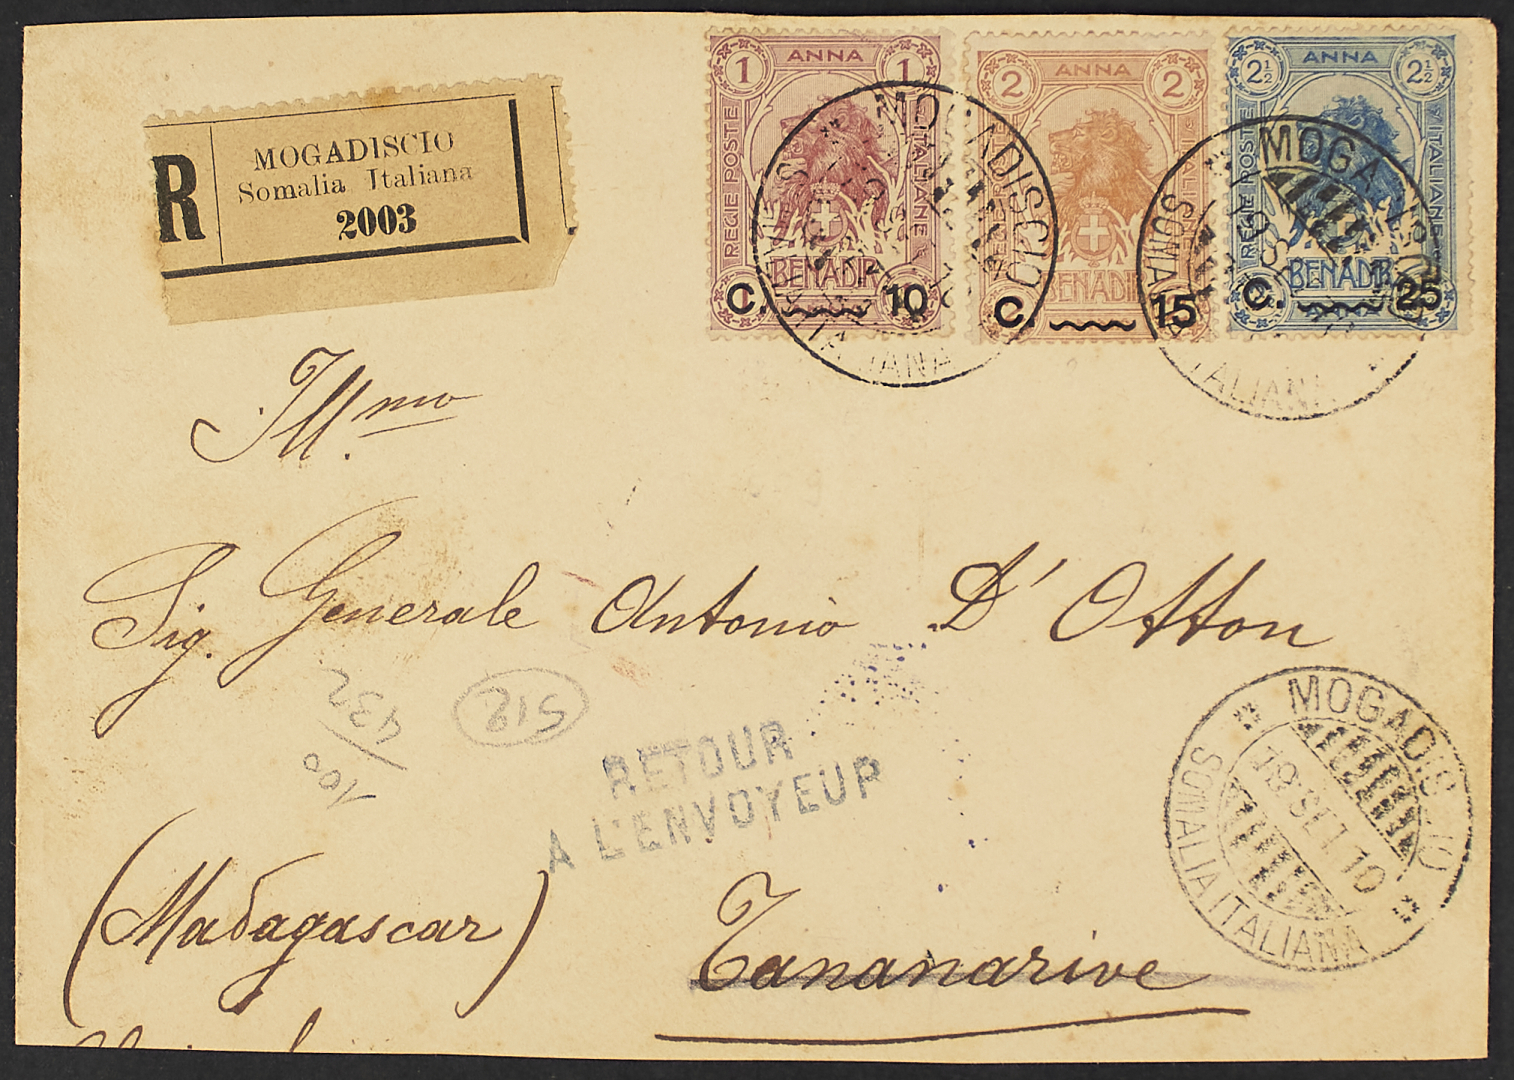 R
MOGADISCIO
Somalia Italiana
2003
1 ANNA 1
REGIE POSTE ITALIANE
BENADIR
C. 10
2 ANNA 2
ITALIANE
BENADIR
C. 15
2½ ANNA 2½
REGIE POSTE ITALIANE
BENADIR
C. 25
MOGADISCIO
ITALIANA
MOGA
SOMALIA ITALIANA
Ill.mo
Sig. Generale Antonio D'Otton
432
100
512
RETOUR
A L'ENVOYEUR
MOGADISCIO
19 SET 10
SOMALIA ITALIANA
(Madagascar) Tananarive